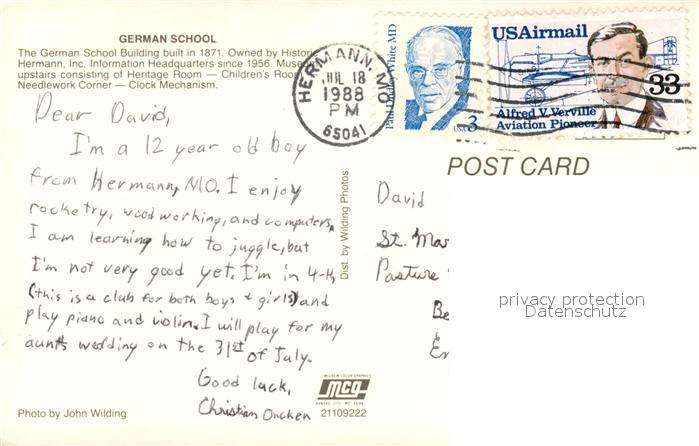 GERMAN SCHOOL
The German School Building built in 1871. Owned by Historic
Hermann, Inc. Information Headquarters since 1956. Museum
upstairs consisting of Heritage Room — Children's Room
Needlework Corner — Clock Mechanism.
Dear David,
I'm a 12 year old boy
from Hermann, MO. I enjoy
rocketry, woodworking, and computers,
I am learning how to juggle, but
I'm not very good yet. I'm in 4-H,
(this is a club for both boys + girls) and
play piano and violin. I will play for my
aunts wedding on the 31st of July.
Good luck,
Christian Oncken
Photo by John Wilding
Dist. by Wilding Photos
mcg
21109222
HERMANN, MO
JUL 18
1988
PM
65041
Paul Dudley White MD
USA 3
USAirmail
33
Alfred V. Verville
Aviation Pioneer
POST CARD
David
St. Mar
Pasture
Be
En
privacy protection
Datenschutz